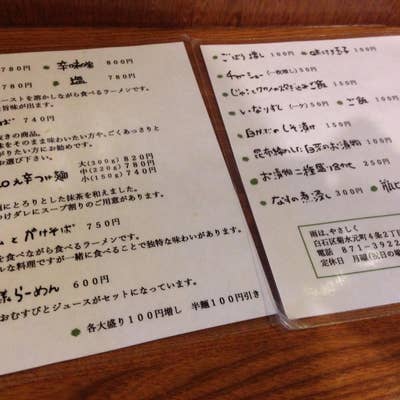 780円 辛味噌 800円
780円 塩 780円
ーストを溶かしながら食べるラーメンです。
旨味が出ます。
ば 740円
抜きの商品。
をそのまま味わいたい方や、ごくあっさりと
たい方にお勧めです。
お選び下さい。
辛つけ麺
大(300g) 820円
中(200g) 740円
小(150g) 740円
にとろりとした抹茶を和えました。
つけダレにスープ割りのご用意があります。
かけそば 750円
を食べながら食べるラーメンです。
ルな料理ですが一緒に食べることで独特な味わいがあります。
らーめん 600円
おむすびとジュースがセットになっています。
各大盛り100円増し 半麺100円引き
ごぼう漬し 100円 味付玉子 100円
チャーシュー(一枚増し) 50円
ご飯 350円
いなりずし(一ケ) 50円 ご飯 100円
しそ漬け 100円
白菜のお漬物 100円
お漬物二種盛り合わせ 250円
なすの煮浸し 300円
雨は、やさしく
白石区菊水元町4条2丁
電話 871-3922
定休日 月曜(祝日の場